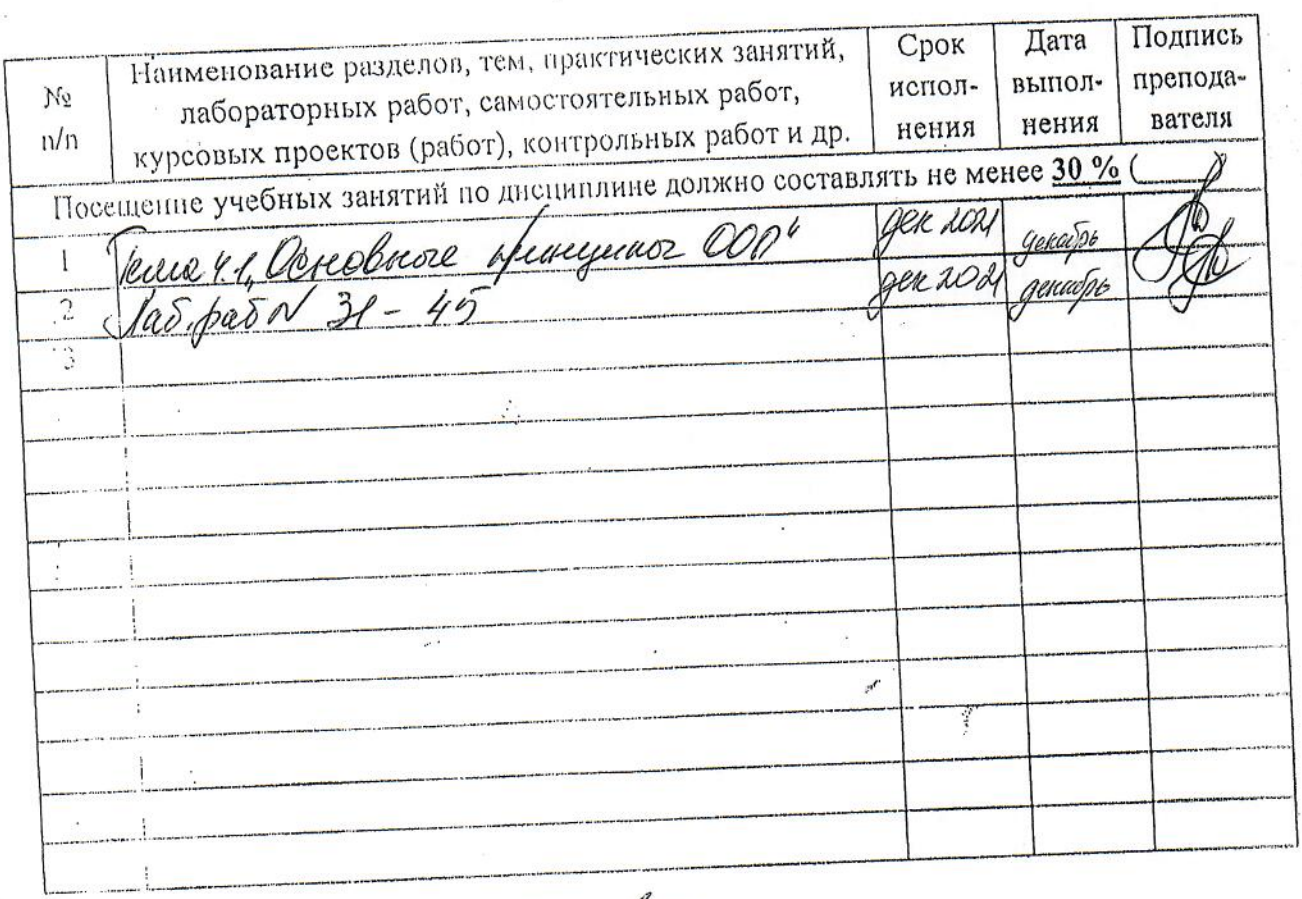 №
п/п
Наименование разделов, тем, практических занятий,
лабораторных работ, самостоятельных работ,
курсовых проектов (работ), контрольных работ и др.
Срок
испол-
нения
Дата
выпол-
нения
Подпись
препода-
вателя
Посещение учебных занятий по дисциплине должно составлять не менее 30 % (______)
1 Тема 4.1 „Основные принципы ООП“ дек 2021 декабрь
2 Лаб. раб N 31 - 45 дек 2021 декабрь
3